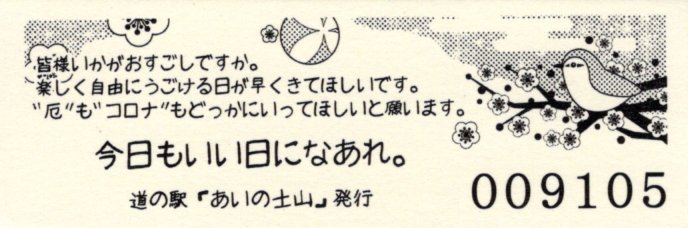 皆様いかがおすごしですか。
楽しく自由にうごける日が早くきてほしいです。
"厄"も"コロナ"もどっかにいってほしいと願います。
今日もいい日になあれ。
道の駅「あいの土山」発行
009105